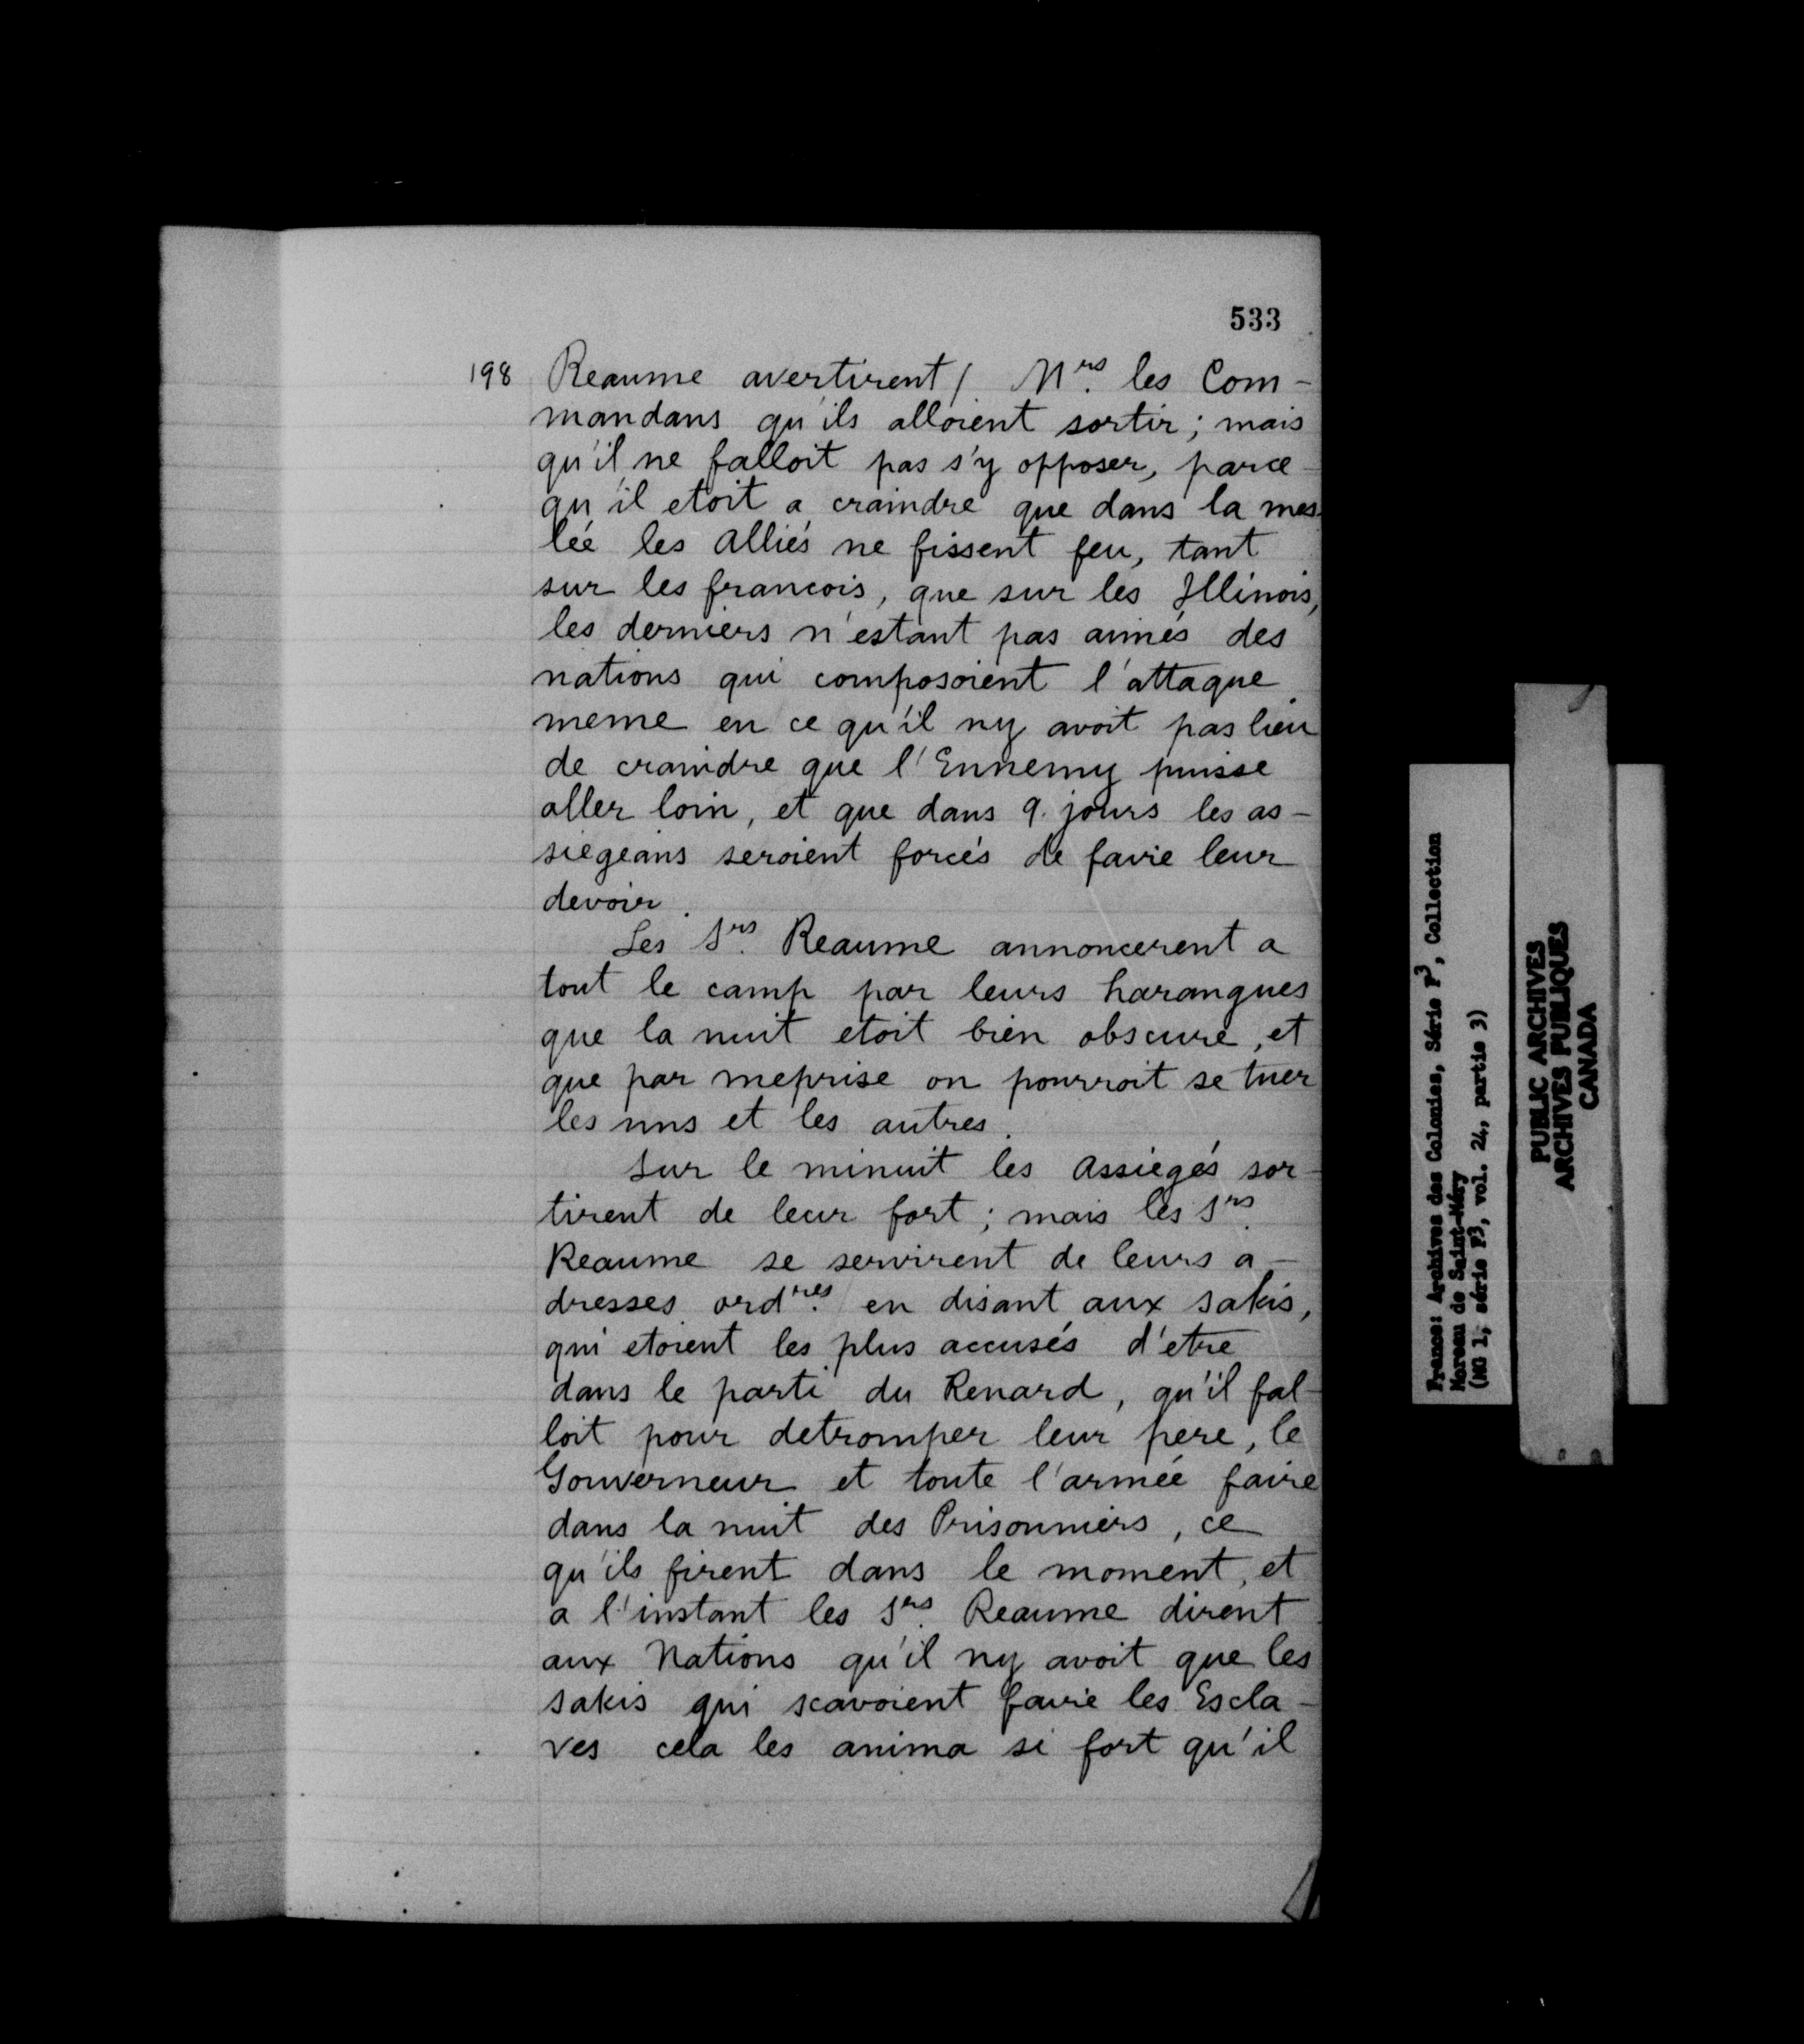 533
198 Reaume avertirent / Mrs. les Com-
mandans qu'ils alloient sortir; mais
qu'il ne falloit pas s'y opposer, parce-
qu'il etoit a craindre que dans la mes-
lée les alliés ne fissent feu, tant
sur les francois, que sur les Illinois,
les derniers n'estant pas aimés des
nations qui composoient l'attaque
meme en ce qu'il ny avoit pas lieu
de craindre que l'Ennemy puisse
aller loin, et que dans 9. jours les as-
siegeans seroient forcés de faire leur
devoir.
Les Srs. Reaume annoncerent a
tout le camp par leurs harangues
que la nuit etoit bien obscure, et
que par meprise on pourroit se tuer
les uns et les autres.
Sur le minuit les assiegés sor-
tirent de leur fort; mais les Srs.
Reaume se servirent de leurs a-
dresses ordres. en disant aux sakis,
qui etoient les plus accusés d'etre
dans le parti du Renard, qu'il fal-
loit pour detromper leur pere, le
Gouverneur et toute l'armée faire
dans la nuit des Prisonniers, ce
qu'ils firent dans le moment, et
a l'instant les Srs. Reaume dirent
aux Nations qu'il ny avoit que les
sakis qui scavoient faire les Escla-
ves cela les anima si fort qu'il
France: Archives des Colonies, Série F3, Collection
Moreau de Saint-Méry
(MG 1, série F3, vol. 24, partie 3)
PUBLIC ARCHIVES
ARCHIVES PUBLIQUES
CANADA